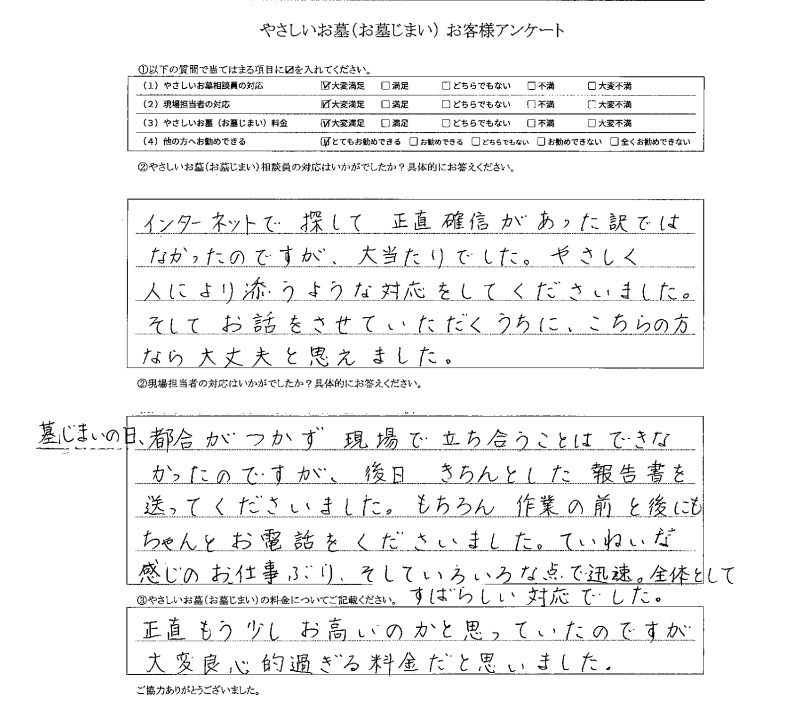 やさしいお墓(お墓じまい) お客様アンケート
①以下の質問で当てはまる項目に☑を入れてください。
(1) やさしいお墓相談員の対応 ☑大変満足 □満足 □どちらでもない □不満 □大変不満
(2) 現場担当者の対応 ☑大変満足 □満足 □どちらでもない □不満 □大変不満
(3) やさしいお墓(お墓じまい)料金 ☑大変満足 □満足 □どちらでもない □不満 □大変不満
(4) 他の方へお勧めできる ☑とてもお勧めできる □お勧めできる □どちらでもない □お勧めできない □全くお勧めできない
②やさしいお墓(お墓じまい)相談員の対応はいかがでしたか?具体的にお答えください。
インターネットで 探して 正直確信があった訳では
なかったのですが、大当たりでした。やさしく
人により添うような対応をしてくださいました。
そして お話をさせていただくうちに、こちらの方
なら大丈夫と思えました。
②現場担当者の対応はいかがでしたか?具体的にお答えください。
墓じまいの日、都合がつかず 現場で立ち合うことはできな
かったのですが、後日 きちんとした 報告書を
送ってくださいました。もちろん 作業の前と後にも
ちゃんとお電話をくださいました。ていねいな
感じのお仕事ぶり、そしていろいろな点で迅速。全体として
すばらしい対応でした。
③やさしいお墓(お墓じまい)の料金についてご記載ください。
正直もう少しお高いのかと思っていたのですが
大変良心的過ぎる料金だと思いました。
ご協力ありがとうございました。